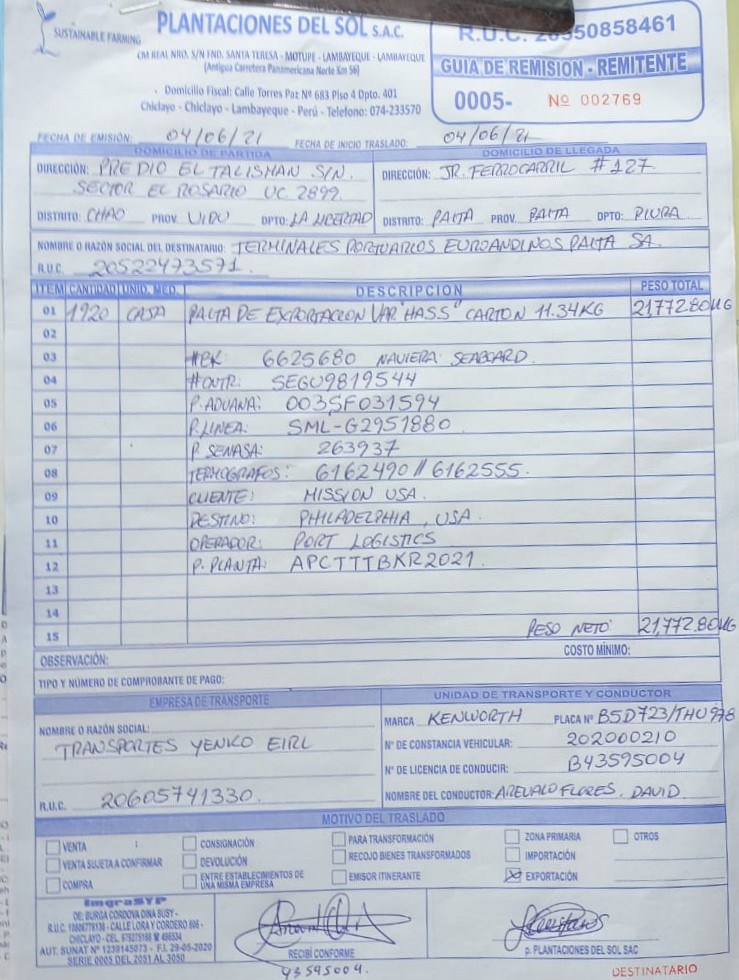 SUSTAINABLE FARMING
PLANTACIONES DEL SOL S.A.C.
CM REAL NRO. S/N FND. SANTA TERESA - MOTUPE - LAMBAYEQUE - LAMBAYEQUE
(Antigua Carretera Panamericana Norte Km 56)
Domicilio Fiscal: Calle Torres Paz Nº 683 Piso 4 Dpto. 401
Chiclayo - Chiclayo - Lambayeque - Perú - Telefono: 074-233570
R.U.C. 20550858461
GUIA DE REMISION - REMITENTE
0005- Nº 002769
FECHA DE EMISIÓN: 04/06/21 FECHA DE INICIO TRASLADO: 04/06/21
DOMICILIO DE PARTIDA
DIRECCIÓN: PREDIO EL TALISMAN S/N.
SECTOR EL ROSARIO UC 2899.
DISTRITO: CHAO PROV. VIRU DPTO: LA LIBERTAD
DOMICILIO DE LLEGADA
DIRECCIÓN: JR. FERROCARRIL #127
DISTRITO: PAITA PROV. PAITA DPTO: PIURA.
NOMBRE O RAZÓN SOCIAL DEL DESTINATARIO: TERMINALES PORTUARIOS EUROANDINOS PAITA SA.
R.U.C. 20522473571.
ITEM CANTIDAD UNID. MED. DESCRIPCION PESO TOTAL
01 1920 CAJA PALTA DE EXPORTACION VAR "HASS" CARTON 11.34KG 21,772.80KG
02
03 #BK: 6625680 NAVIERA: SEABOARD.
04 #CNTR: SEGU9819544
05 P. ADUANA: 003SF031594
06 P. LINEA: SML-G2951880
07 P. SENASA: 263937
08 TERMOGRAFOS: 6162490 // 6162555.
09 CLIENTE: MISSION USA.
10 DESTINO: PHILADELPHIA, USA.
11 OPERADOR: PORT LOGISTICS
12 P. PLANTA: APCTTTBKR2021.
13
14
15 PESO NETO: 21,772.80KG
OBSERVACIÓN: COSTO MÍNIMO:
TIPO Y NÚMERO DE COMPROBANTE DE PAGO:
EMPRESA DE TRANSPORTE
NOMBRE O RAZÓN SOCIAL:
TRANSPORTES YENKO EIRL
R.U.C. 20605741330.
UNIDAD DE TRANSPORTE Y CONDUCTOR
MARCA KENWORTH PLACA Nº B5D723/THU998
Nº DE CONSTANCIA VEHICULAR: 202000210
Nº DE LICENCIA DE CONDUCIR: B43595004
NOMBRE DEL CONDUCTOR: AREVALO FLORES, DAVID
MOTIVO DEL TRASLADO
VENTA CONSIGNACIÓN PARA TRANSFORMACIÓN ZONA PRIMARIA OTROS
VENTA SUJETA A CONFIRMAR DEVOLUCIÓN RECOJO BIENES TRANSFORMADOS IMPORTACIÓN
COMPRA ENTRE ESTABLECIMIENTOS DE UNA MISMA EMPRESA EMISOR ITINERANTE X EXPORTACIÓN
ImgraSYP
DE: BURGA CORDOVA DINA SUSY -
CALLE LORA Y CORDERO
AUT. SUNAT Nº 1239145073 - F.I. 29-05-2020
SERIE 0005 DEL 2051 AL 3050
RECIBÍ CONFORME
43595004.
p. PLANTACIONES DEL SOL SAC
DESTINATARIO